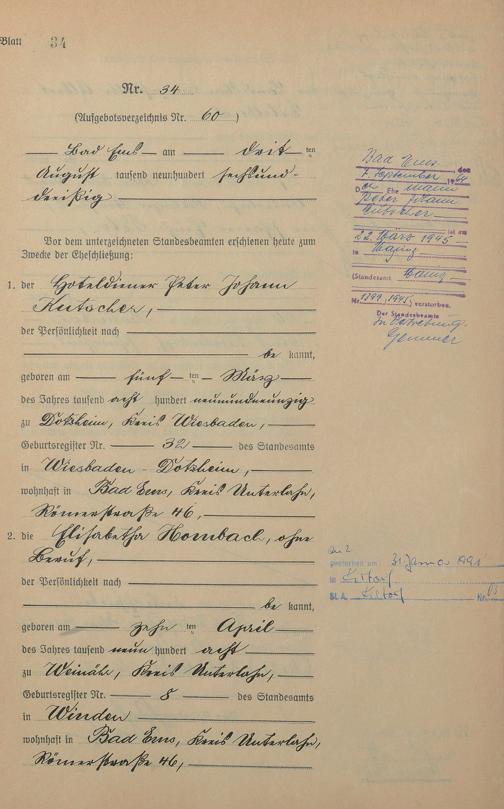 Blatt 34
Nr. 34
(Aufgebotsverzeichnis Nr. 60)
Bad Ems am dritten
August tausend neunhundert sechsund-
dreißig
Vor dem unterzeichneten Standesbeamten erschienen heute zum
Zwecke der Eheschließung:
1. der Hoteldiener Peter Johann
Kutscher,
der Persönlichkeit nach
be kannt,
geboren am fünf ten März
des Jahres tausend acht hundert neunundneunzig
zu Dotzheim, Kreis Wiesbaden,
Geburtsregister Nr. 32 des Standesamts
in Wiesbaden-Dotzheim,
wohnhaft in Bad Ems, Kreis Unterlahn,
Römerstraße 46,
2. die Elisabetha Hombach, ohne
Beruf,
der Persönlichkeit nach
be kannt,
geboren am zehn ten April
des Jahres tausend neun hundert acht
zu Weinähr, Kreis Unterlahn,
Geburtsregister Nr. 8 des Standesamts
in Winden
wohnhaft in Bad Ems, Kreis Unterlahn,
Römerstraße 46,
Bad Ems, den
7. September 19
Ehemann
Peter Johann
Kutscher
ist am
22. März 1945
in Mainz
(Standesamt Mainz
Nr. 1399/1945) verstorben.
Der Standesbeamte
In Vertretung
gestorben am 31. Januar 1991
in Eitorf
St. A. Eitorf Nr.